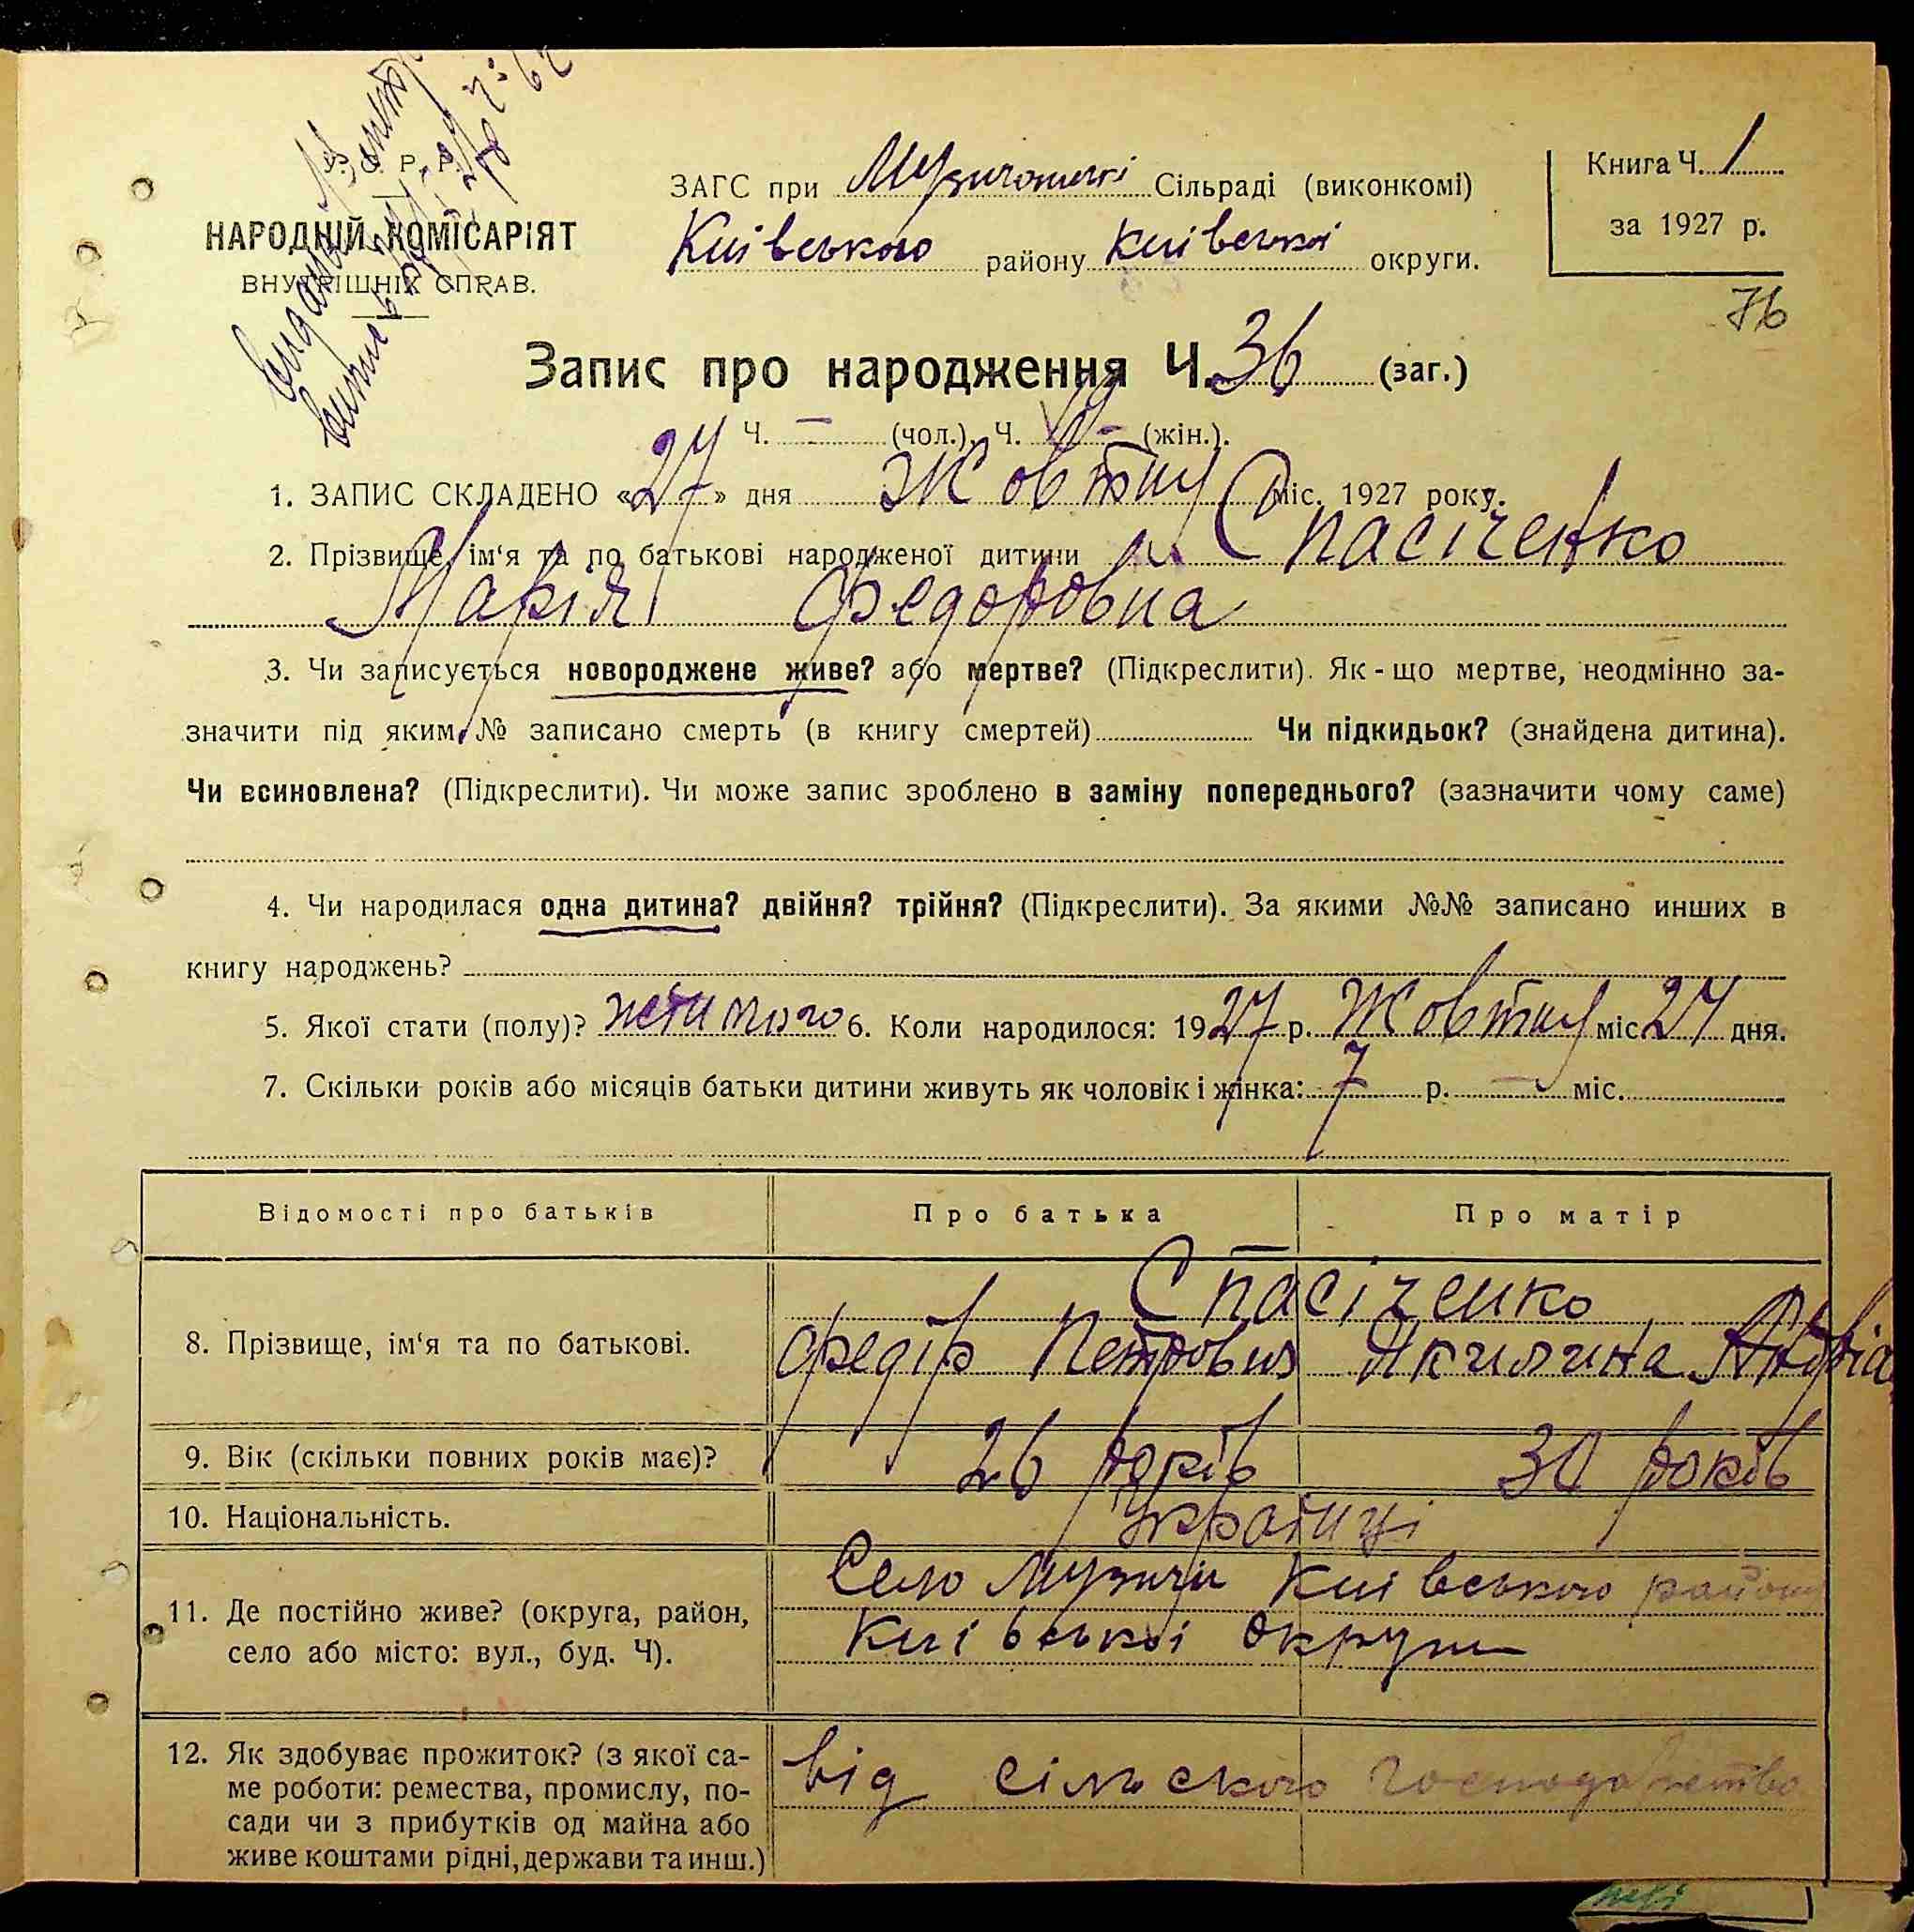 У. С. Р. Р.
НАРОДНІЙ КОМІСАРІЯТ
ВНУТРІШНІХ СПРАВ.
ЗАГС при Музичанській Сільраді (виконкомі)
Київського району Київської округи.
Книга Ч. 1
за 1927 р.
76
Запис про народження Ч. 36 (заг.)
Ч. — (чол.). Ч. (жін.).
1. ЗАПИС СКЛАДЕНО «27» дня Жовтня міс. 1927 року.
2. Прізвище, ім'я та по батькові народженої дитини Спасіченко
Марія Федоровна
3. Чи записується новороджене живе? або мертве? (Підкреслити). Як-що мертве, неодмінно за-
значити під яким № записано смерть (в книгу смертей) Чи підкидьок? (знайдена дитина).
Чи всиновлена? (Підкреслити). Чи може запис зроблено в заміну попереднього? (зазначити чому саме)
4. Чи народилася одна дитина? двійня? трійня? (Підкреслити). За якими №№ записано инших в
книгу народжень?
5. Якої стати (полу)? 6. Коли народилося: 1927 р. Жовтня міс. 27 дня.
7. Скільки років або місяців батьки дитини живуть як чоловік і жінка: 7 р. — міс.
Відомості про батьків Про батька Про матір
Спасіченко
8. Прізвище, ім'я та по батькові. Федір Петрович Якилина
9. Вік (скільки повних років має)? 26 років 30 років
10. Національність. Українці
11. Де постійно живе? (округа, район, Село Музичи Київського району
село або місто: вул., буд. Ч). Київської округи
12. Як здобуває прожиток? (з якої са- від сільского господарства
ме роботи: ремества, промислу, по-
сади чи з прибутків од майна або
живе коштами рідні, держави та инш.)